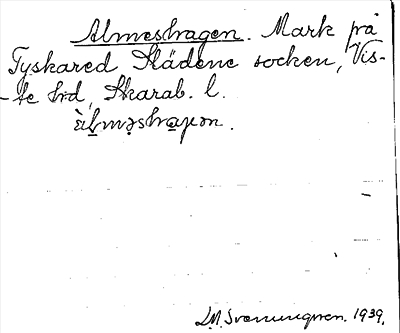 Almeshagen. Mark på
Tyskared Slädene socken, Vis-
-te hrd, Skarab. l.
L.M. Svenungsson. 1939.